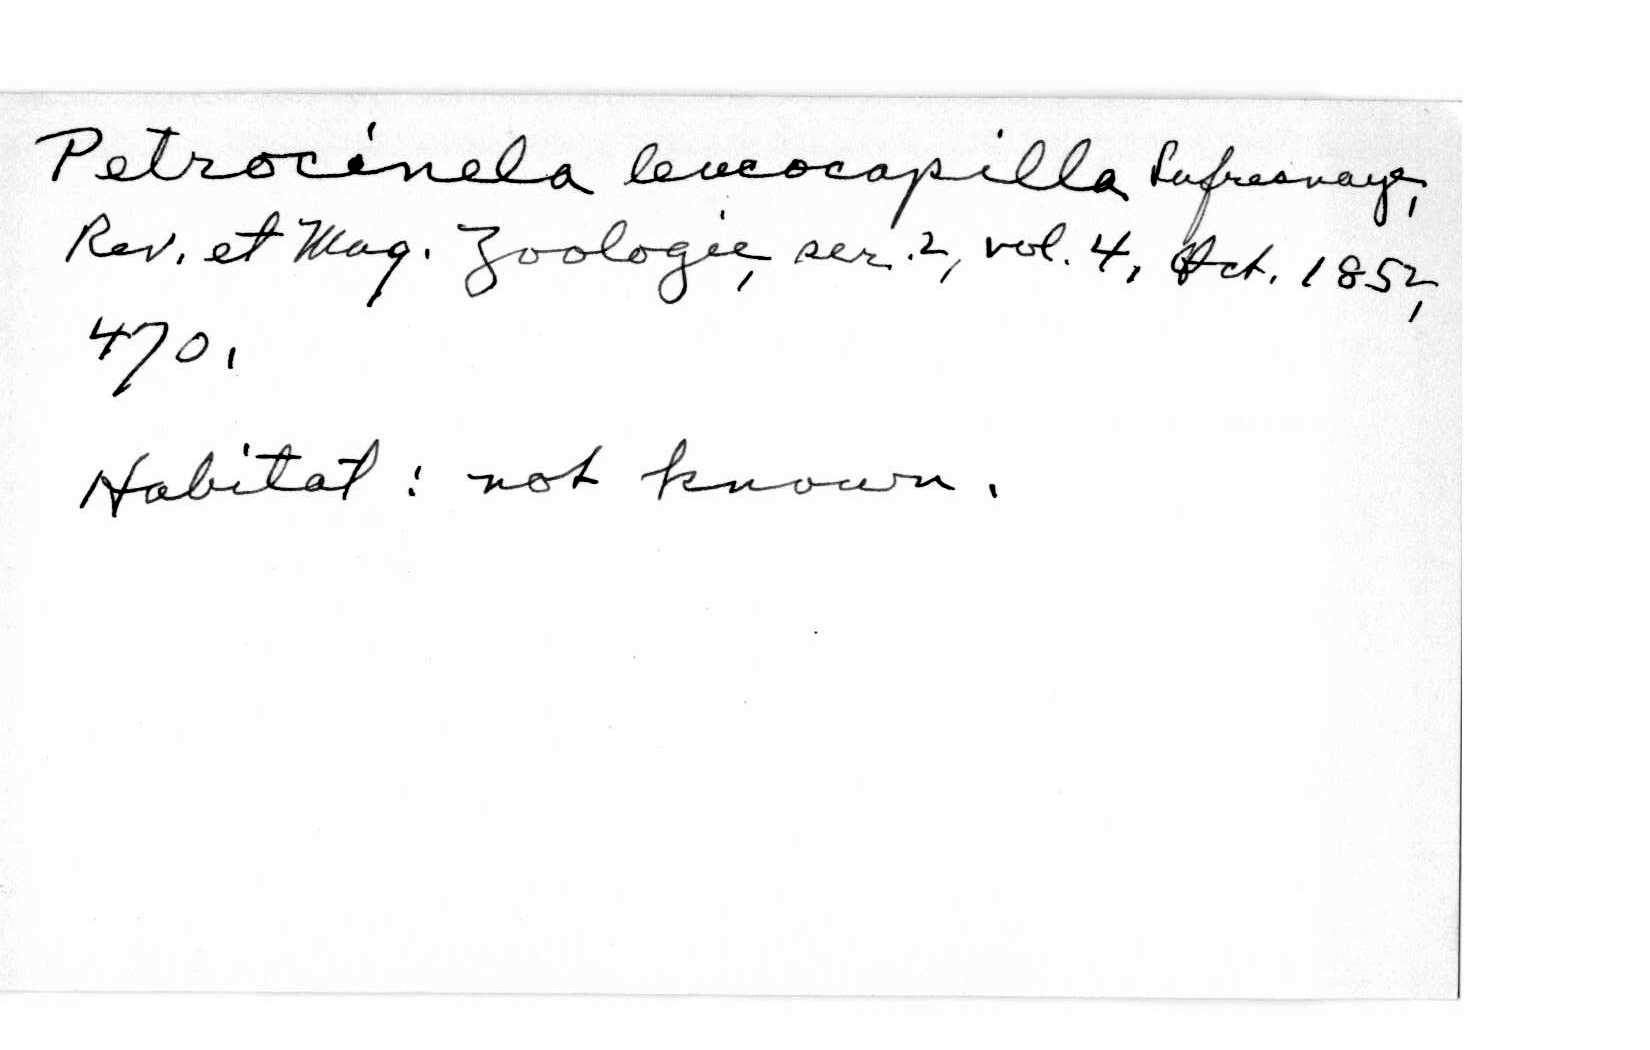 Petrocinela leucocapilla Lafresnaye,
Rev. et Mag. Zoologie, ser. 2, vol. 4, Oct. 1852,
470.
Habitat: not known.